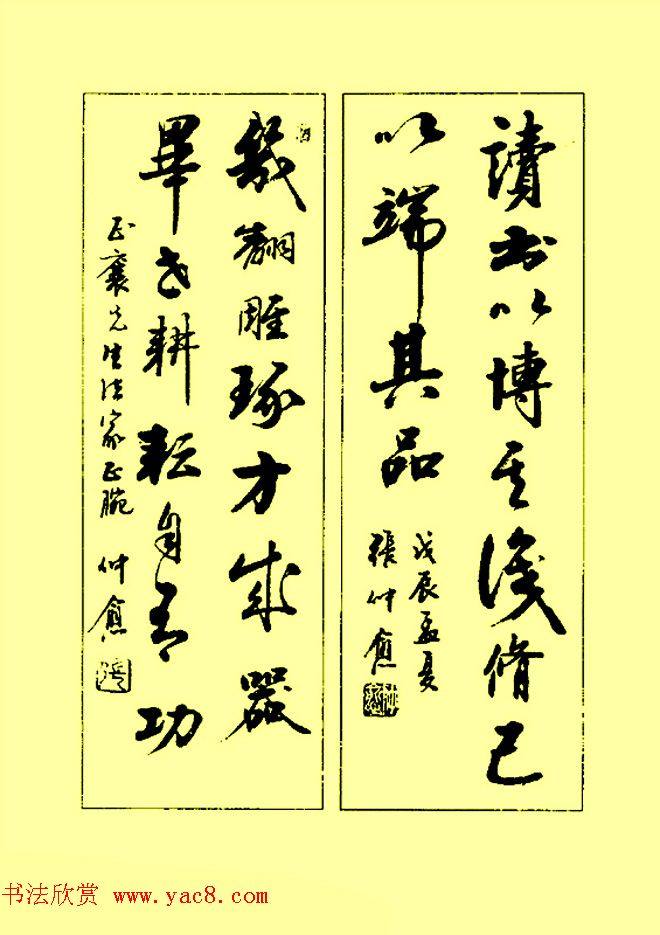 讀書以博其識脩己
以端其品
戊辰孟夏
張仲愈
幾翻雕琢方成器
畢世耕耘自有功
正襄先生法家正腕
仲愈
书法欣赏 www.yac8.com